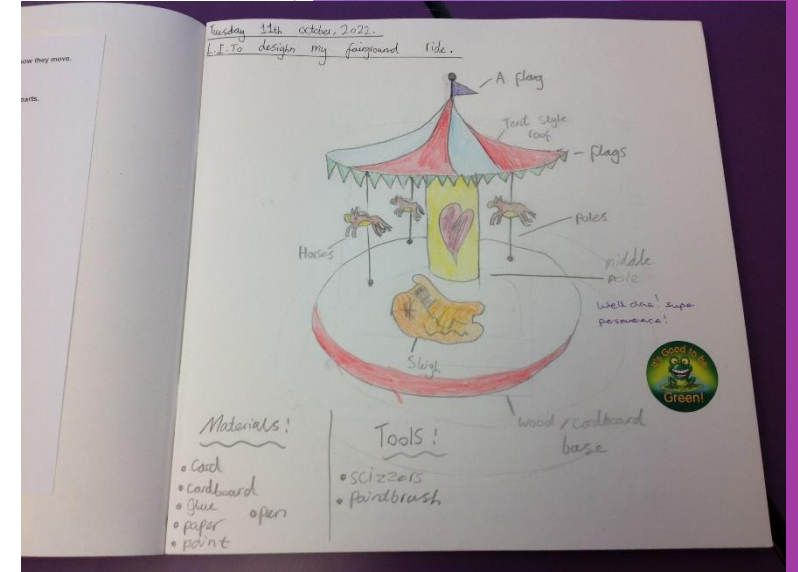 ow they move.
parts.
Tuesday 11th october, 2022.
L.I.To desighn my fairground ride.
A flag
Tent style
roof
flags
Horses
poles
middle
pole
Well done! super
Sleigh
It's Good to be
Green!
wood / cardboard
base
Materials!
• Card
• cardboard
• glue
• pen
• paper
• paint
Tools!
• scizzers
• paintbrush